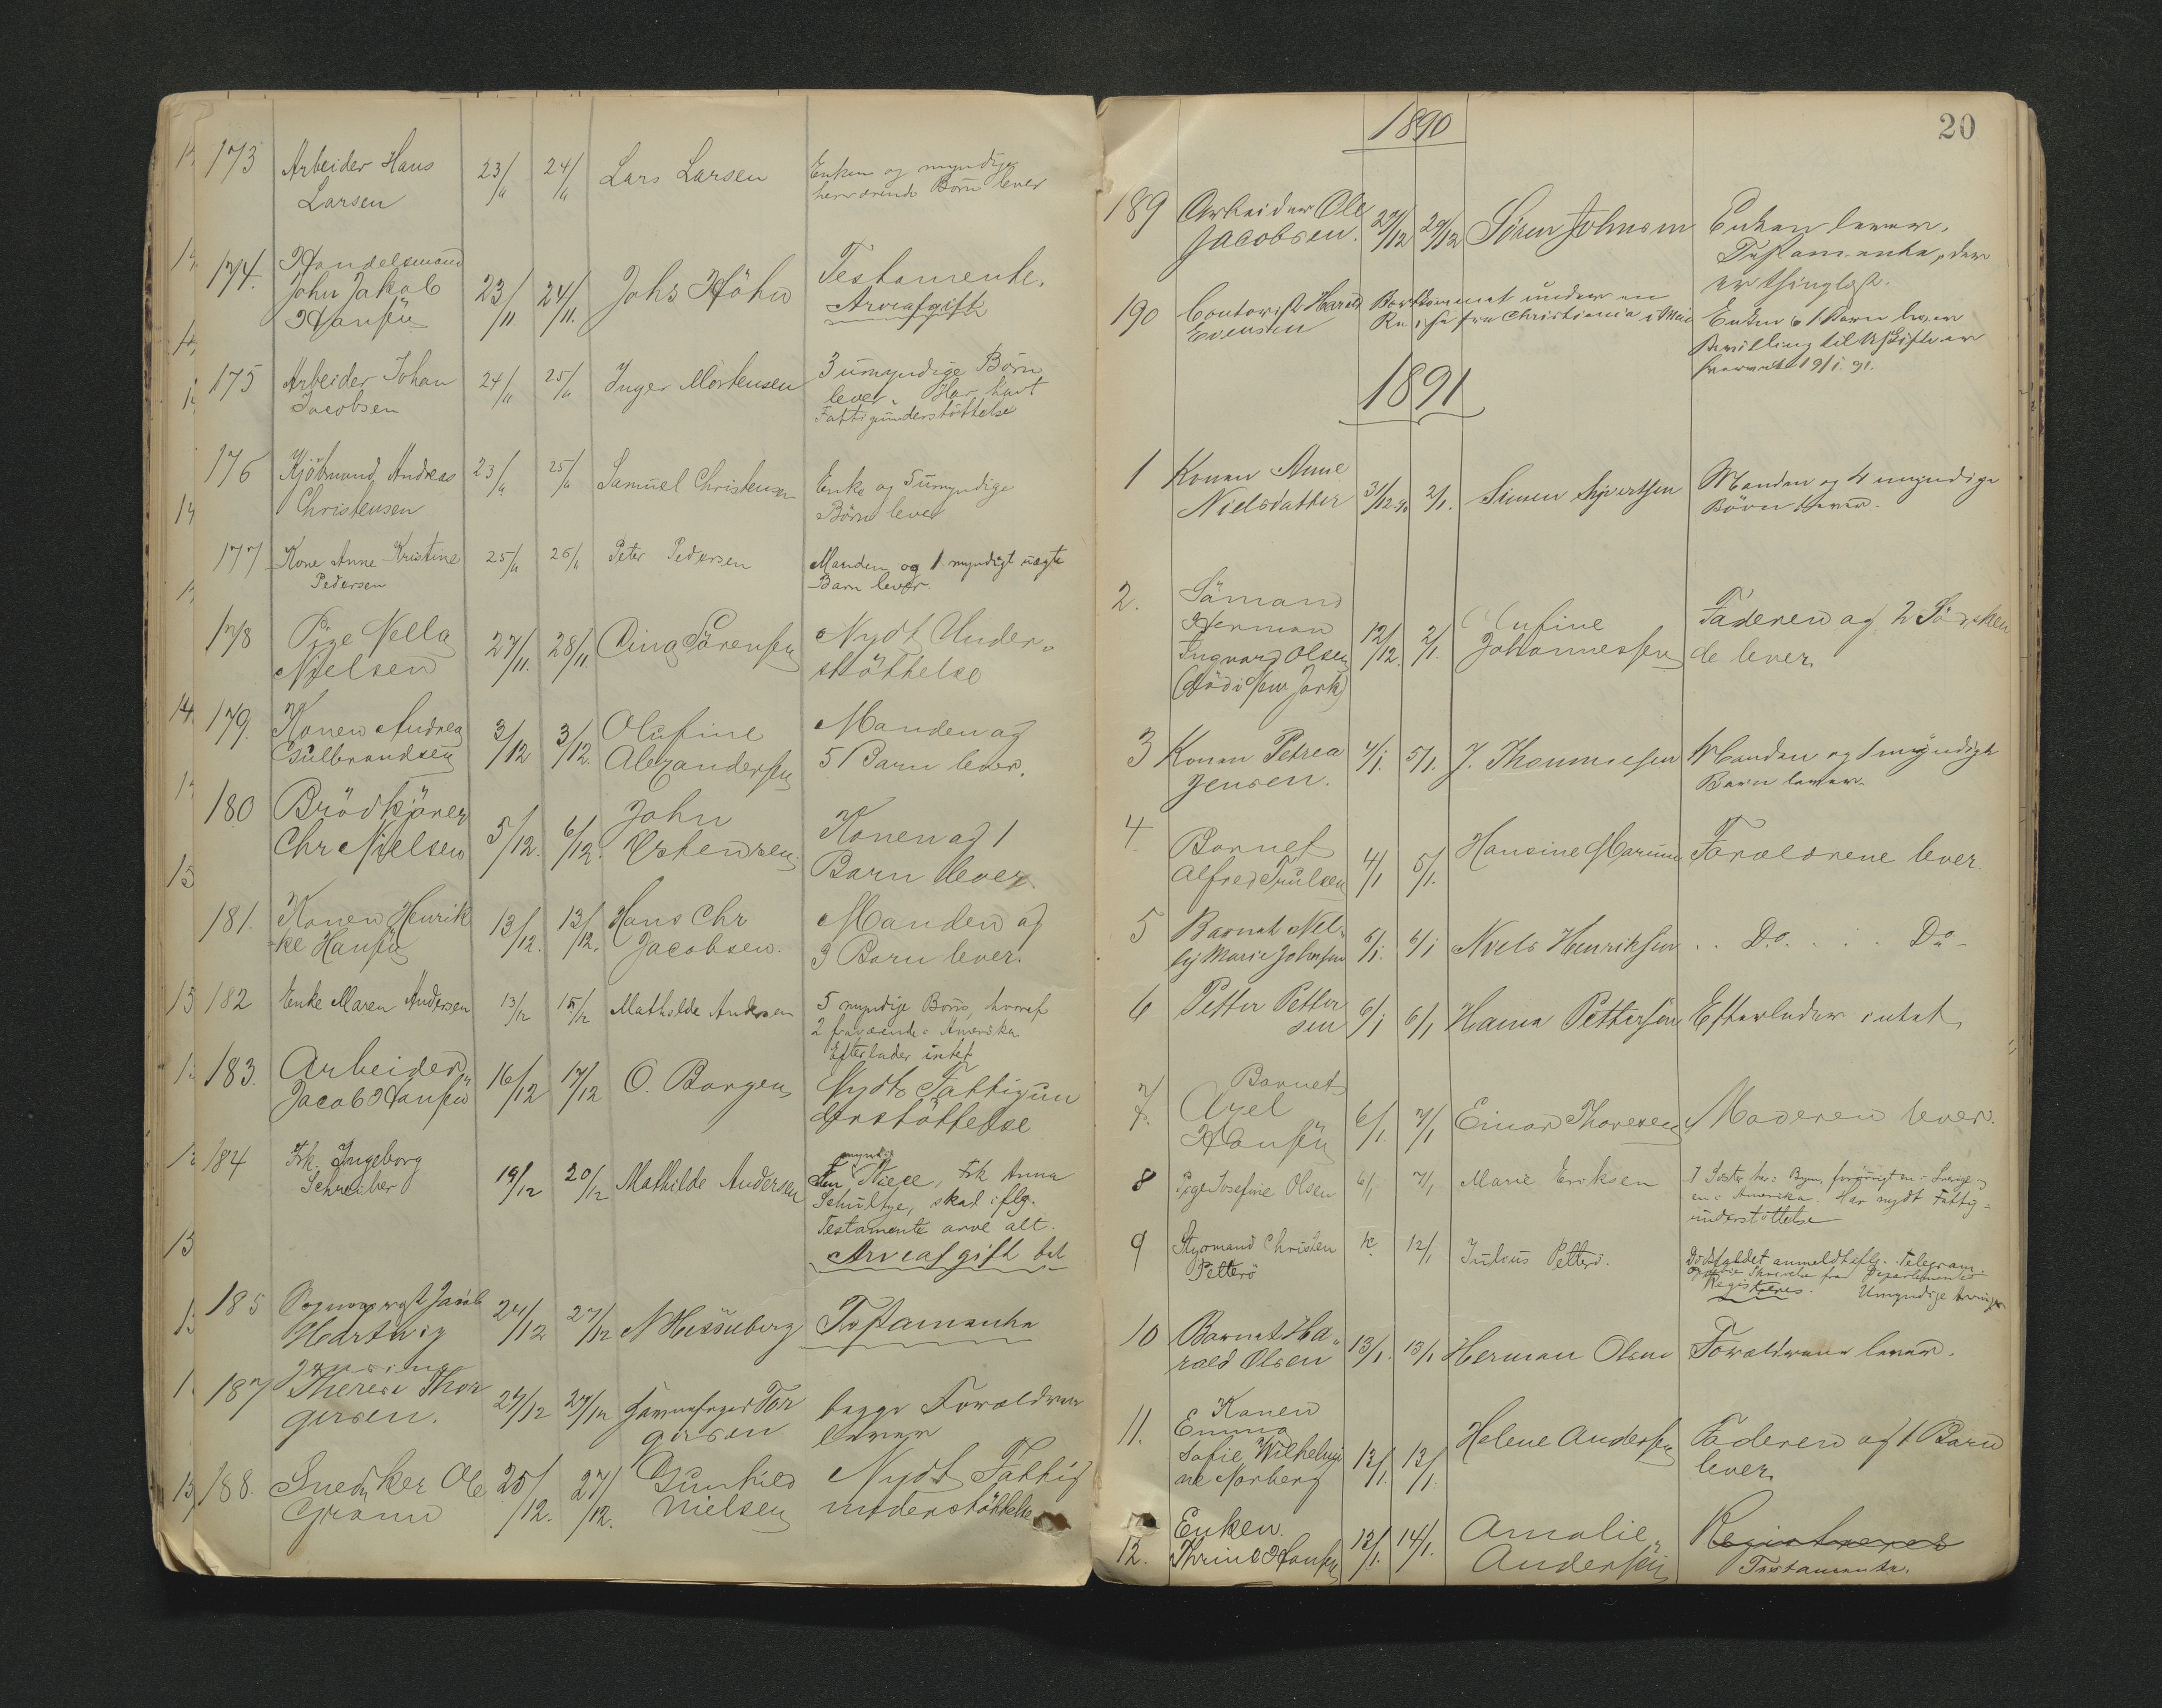 173 Arbeider Hans 23/11 24/11 Lars Larsen Enken og myndige
Larsen herværende Børn lever
174. Handelsmand
John Jakob 23/11. 24/11. Johs Höhn Testamente.
Hansen Arveafgift
175 Arbeider Johan 24/11 25/11 Inger Mortensen 3 umyndige Börn
Jacobsen lever. Har havt
Fattigunderstöttelse
176 Kjöbmand Andreas 23/11 25/11 Samuel Christensen Enke og 5 umyndige
Christensen Börn lever
177 Kone Anne Kristine 25/11 26/11 Peter Pedersen Manden og 1 myndigt uægte
Pedersen Barn lever.
178 Pige Nella 27/11. 28/11 Lina Sörensen Nydt Under-
Nielsen stöttelse
179. Konen Andrea 3/12 3/12. Olufine Manden og
Gulbrandsen Alexandersen 5 Barn lever.
180 Brödkjörer 5/12. 6/12. John Konen og 1
Chr Nielsen Ostensen. Barn lever.
181. Konen Henrik 13/12. 13/12. Hans Chr Manden og
ke Hansen Jacobsen. 3 Barn lever.
182 Enke Maren Andersen 13/12 15/12 Mathilde Andersen 5 myndige Börn, hvoraf
2 fraværende i Amerika
Efterlader intet
183. Arbeider 16/12 17/12 O. Borgen Nydt Fattigun
Jacob Hansen derstöttelse
184 Frk. Ingeborg 19/12 20/12 Mathilde Andersen En myndig Niece, Frk Anna
Schreiber Schultze, skal iflg.
Testamente arve alt.
Arveafgift bet
185 Sogneprest Jacob 24/12 27/12 N Hessenberg Testamente
Hartvig
187 Therese Thor 24/12 27/12 Torgersen begge Forældrene
gersen. lever
188. Snedker Ole 25/12. 27/12. Gunhild Nydt Fattig
Grönn Nielsen understöttelse
1890
20
189 Arbeider Ole 27/12 29/12 Sören Johnsen Enken lever.
Jacobsen. Testamente, der
er thinglæst.
190 Contorist Harald Bortkommet under en
Evensen Reise fra Christiania i Mai Enken & 1 Barn lever
Bevilling til Uskifte er
19/1. 91.
1891
1 Konen Anne 31/12.90 2/1. Simen Syvertsen Manden og 4 myndige
Nielsdatter Börn lever.
2. Sömand
Herman 12/12. 2/1. Olufine Faderen og 2 Södsken
Ingvard Olsen Johannessen de lever.
(död i New Jork)
3 Konen Petrea 4/1. 5/1. J. Thommesen Manden og 1 myndigt
Jensen. Barn lever.
4 Barnet 4/1 5/1. Hansine Marum Forældrene lever.
Alfred Trulsen
5 Barnet Nel- 5/1. 6/1 Niels Henriksen .. Do. . . . Do -
ly Marie Johnsen
6 Petter Petter 6/1 6/1 Hanna Pettersen Efterlader intet.
sen
7. Barnet
Axel 6/1. 7/1 Einar Thoresen Moderen lever.
Hansen
8 Pige Josefine Olsen 6/1 7/1 Marie Eriksen 1 Söster her i Byen, forövrigt en i Sverige og
en i Amerika. Har nydt Fattig-
understöttelse
9 Styrmand Christen 12/1 Julius Petterö. Dödsfaldet anmeldt iflg. Telegram.
Petterö Skrivelse fra Departementet
Registreres. Umyndige Arvinger
10 Barnet Ha- 13/1. 13/1 Herman Olsen Forældrene lever.
rald Olsen
11. Konen
Emma 12/1. 13/1. Helene Andersen Faderen og 1 Barn
Sofie Wilhelmi lever.
ne Norberg
12. Enken. 12/1. 14/1. Amalie Registreres
Thrine Hansen Andersen Testamente.